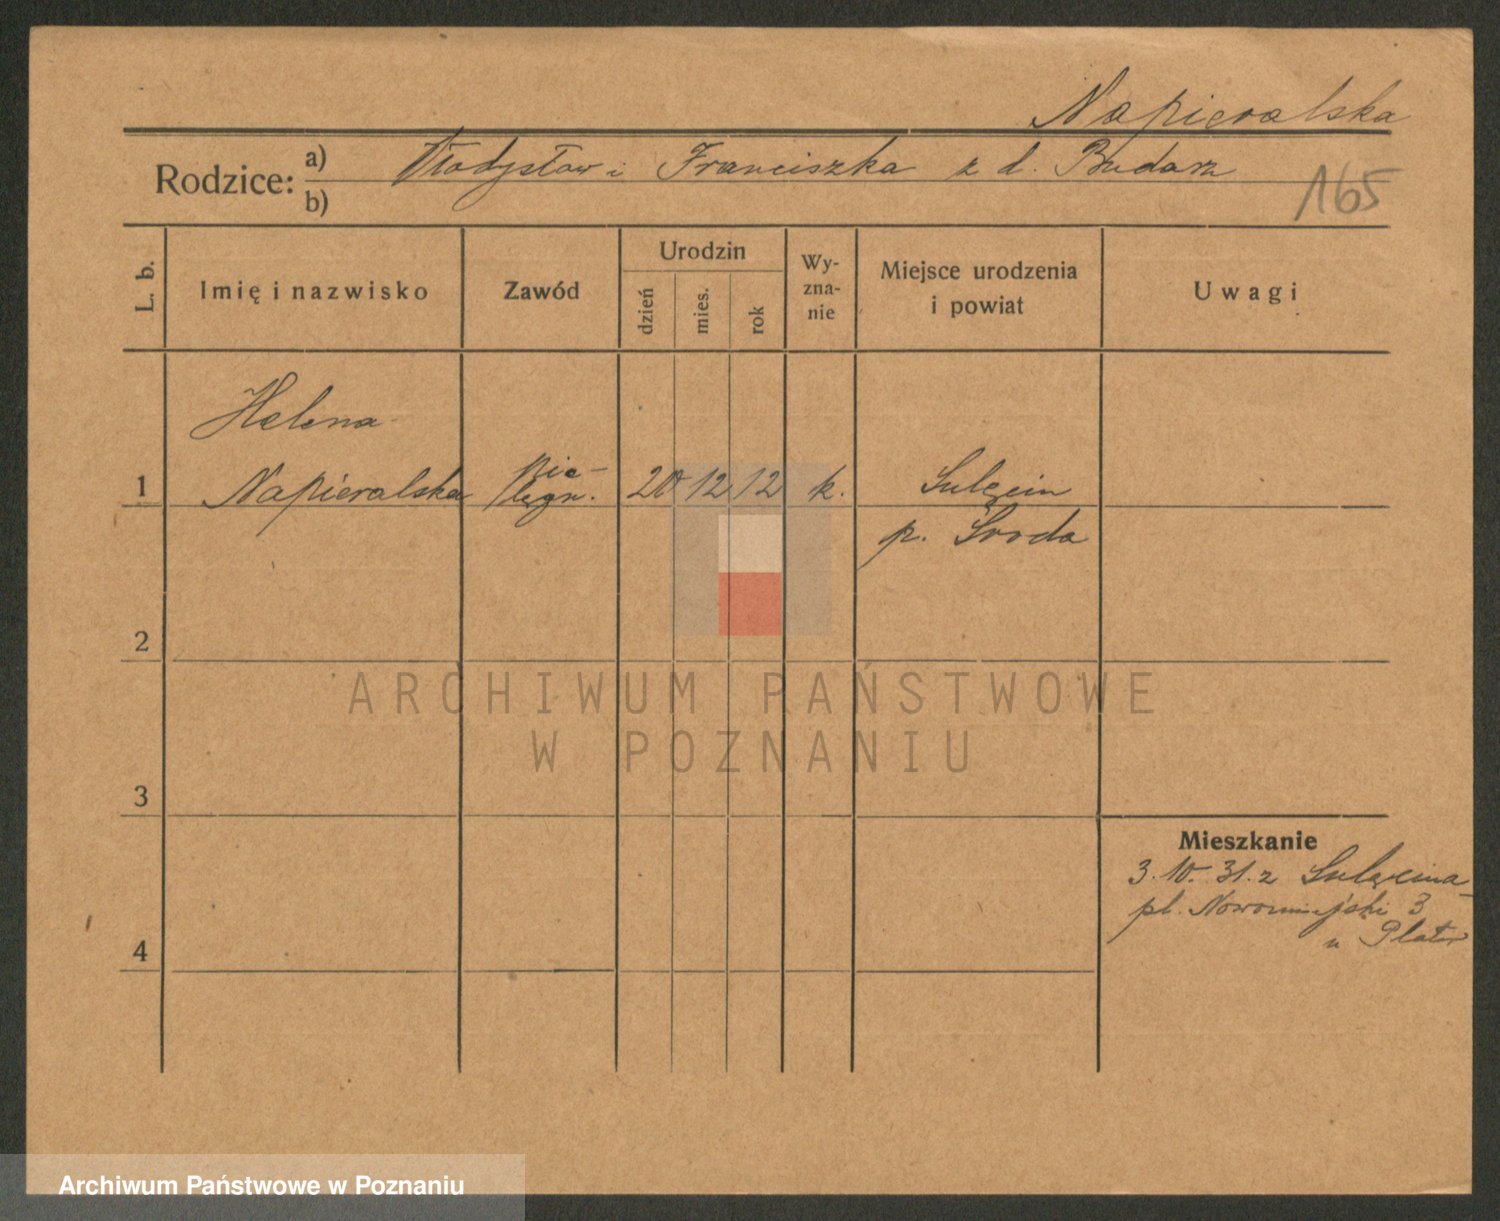 Napieralska
Rodzice: a) Władysław i Franciszka z d. Budasz
b)
165
L. b.
Imię i nazwisko
Zawód
Urodzin
dzień
mies.
rok
Wy-
zna-
nie
Miejsce urodzenia
i powiat
Uwagi
Helena
1 Napieralska
pie-
lęgn.
20 12 12 k.
Sulęcin
p. Środa
2
3
4
Mieszkanie
3.10.31. z Sulęcina
pl. Nowomiejski 3
u Plater
ARCHIWUM PAŃSTWOWE
W POZNANIU
Archiwum Państwowe w Poznaniu